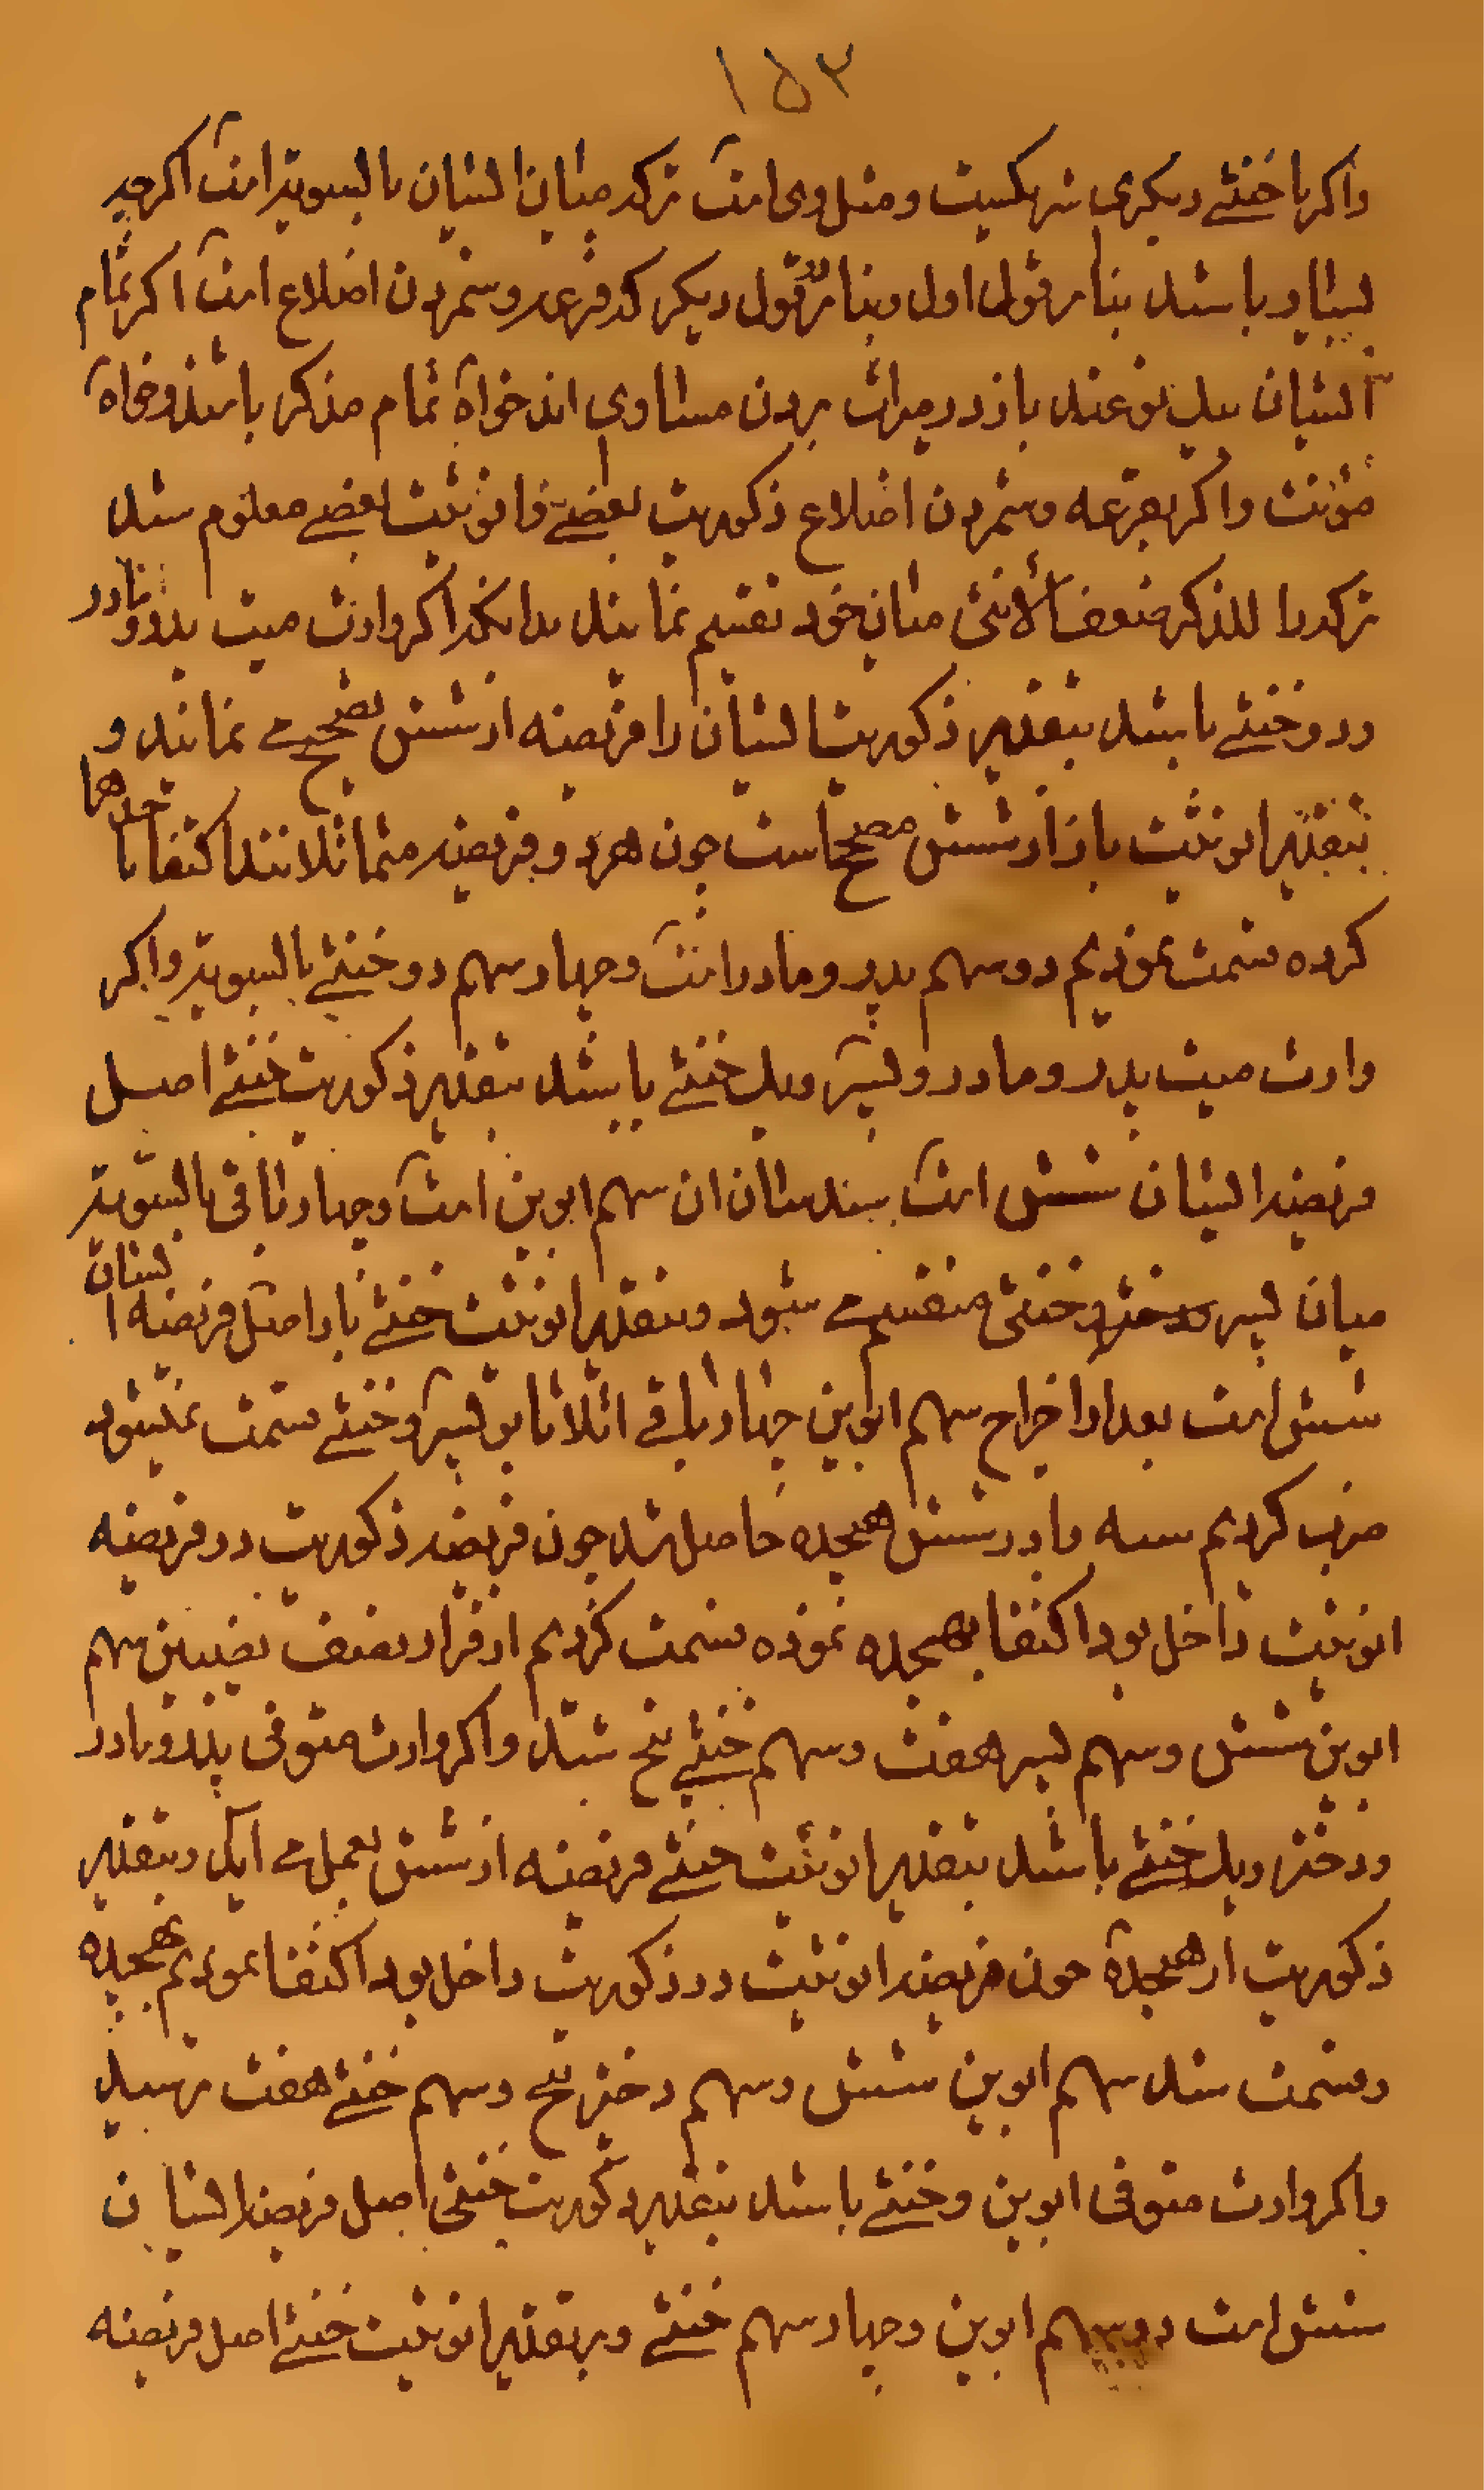 ۱۵۳
واکر با خنثے دیکری شریکست و مثل وی است ترکه میان ایشان بالسویه است اکرچه
بسیار باشند بنا بر قول اول و بنا بر قول دیکر که قرعه و شمردن اضلاع است اکر تمام
ایشان یک نوعند باز در میراث بردن مساوی اند خواه تمام مذکر باشند و خواه
مؤنث و اکر بقرعه و شمردن اضلاع ذکوریت بعضے و انوثیت بعضے معلوم شد
ترکه را للذکر ضعف الأنثی میان خود تقسیم نمایند بدانکه اکر وارث میت پدر و مادر
و دو خنثے باشند بتقدیر ذکوریت ایشان را فریضه از شش تصحیح مے نمایند و
بتقدیر انوثیت باز از شش مصحح است چون هر دو فریضه متماثلانند اکتفا باحدهما
کرده قسمت نمودیم دو سهم پدر و مادر راست و چهار سهم دو خنثے بالسویه و اکر
وارث میت پدر و مادر و پسر و یک خنثے باشند بتقدیر ذکوریت خنثے اصل
فریضه ایشان شش است سدسان ان سهم ابوین است و چهار باقی بالسویه
میان پسر و خنثی منقسم مے شود و بتقدیر انوثیت خنثے باز اصل فریضه ایشان
شش است بعد از اخراج سهم ابوین چهار باقے اثلاثا بر پسر و خنثے قسمت نمیشود
ضرب کردیم سه را در شش هیجده حاصل شد چون فریضه ذکوریت در فریضه
انوثیت داخل بود اکتفا بهیجده نموده قسمت کردیم از قرار نصف نصیبین سهم
ابوین شش و سهم پسر هفت و سهم خنثے پنج شد و اکر وارث متوفی پدر و مادر
و دختر و یک خنثے باشند بتقدیر انوثیت خنثے فریضه از شش بعمل مے اید و بتقدیر
ذکوریت از هیجده چون فریضه انوثیت در ذکوریت داخل بود اکتفا نمودیم بهیجده
و قسمت شد سهم ابوین شش و سهم دختر پنج و سهم خنثے هفت رسید
و اکر وارث متوفی ابوین و خنثے باشند بتقدیر ذکوریت خنثی اصل فریضه ایشان
شش است دو سهم ابوین و چهار سهم خنثے و بر تقدیر انوثیت خنثے اصل فریضه